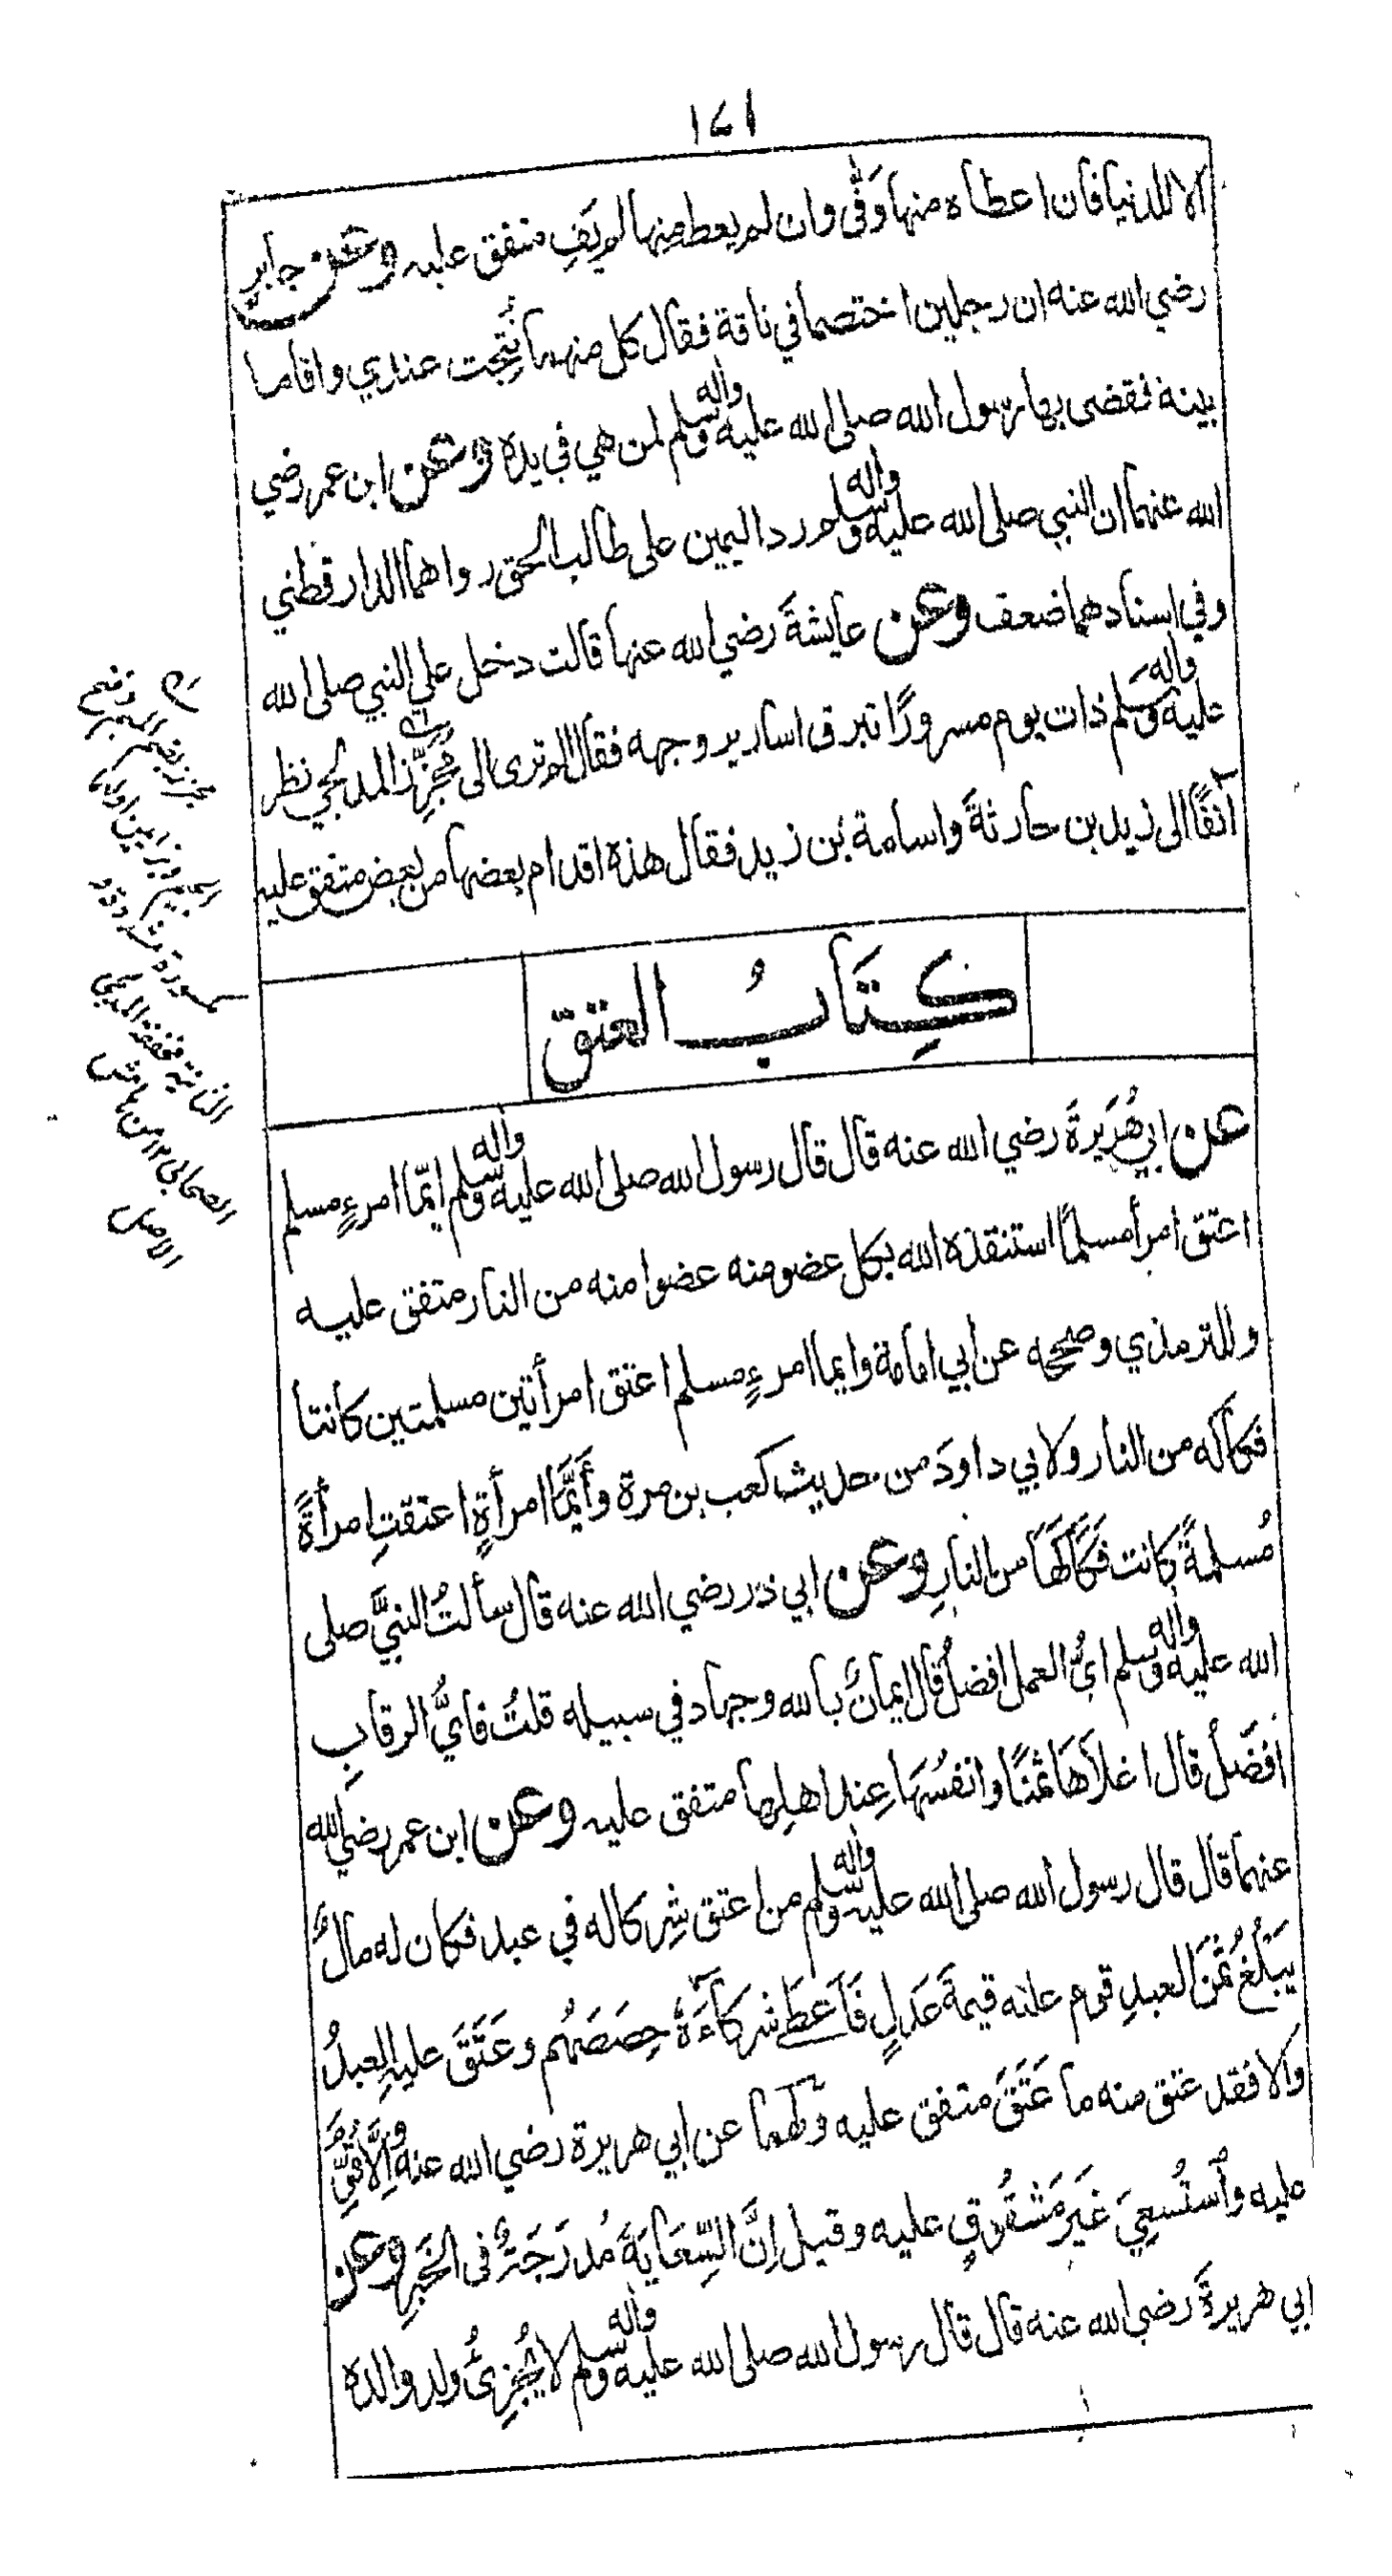 ١٧١
الا للدنيا فان اعطاه منها وَفّٰى وان لم يعطه منها لم يَفِ متفق عليه وعن جابر
رضي الله عنه ان رجلين اختصما في ناقة فقال كل منهما نُتِجت عندي واقاما
بينة فقضى بها رسول الله صلى الله عليه واله وسلم لمن هي في يده وعن ابن عمر رضي
الله عنهما ان النبي صلى الله عليه واله وسلم رد اليمين على طالب الحق رواهما الدارقطني
وفي اسنادهما ضعف وعن عايشةَ رضي الله عنها قالت دخل علي النبي صلى الله
عليه واله وسلم ذات يوم مسرورًا تبرق اسارير وجهه فقال الم ترى الى مُجَزِّز المدلجي نظر
آنفًا الى زيد بن حارثةَ واسامة بن زيد فقال هذه اقدام بعضها من بعض متفق عليه
مجزز بضم الميم وفتح
الجيم وزاين اولاهما
مكسورة مشددة و
الثانية مخففة المدلجي
الصحابي ١٢ من هامش
الاصل
كِتَابُ العتق
عن ابي هُرَيرةَ رضي الله عنه قال قال رسول الله صلى الله عليه واله وسلم ايّما امرءٍ مسلم
اعتق امرأ مسلمًا استنقذه الله بكل عضو منه عضوا منه من النار متفق عليه
وللترمذي وصححه عن ابي امامة وايما امرءٍ مسلم اعتق امرأتين مسلمتين كانتا
فكاكه من النار ولابي داودَ من حديث كعب بن مرة وأَيَّمَا امرأةٍ اعتقتِ امرأةً
مُسلمةً كانت فَكَاكَهَا من النارِ وعن ابي ذر رضي الله عنه قال سألتُ النبيَّ صلى
الله عليه واله وسلم ايُّ العمل افضلُ قال ايمانٌ بالله وجهاد في سبيله قلتُ فايُّ الرقابِ
افضَلُ قال اغلاهَا ثمنًا وانفسُهَا عِند اهلِها متفق عليه وعن ابن عمر رضي الله
عنهما قال قال رسول الله صلى الله عليه واله وسلم من اعتق شِركا له في عبد فكان له مالٌ
يَبْلُغُ ثمنَ العبدِ قوم عليه قيمةَ عَدلٍ فَاَعطٰى شركآءَهٗ حِصَصَهُم وعَتَقَ عليهِ العبدُ
والا فقد عتق منه ما عَتَقَ متفق عليه ولهما عن ابي هريرة رضي الله عنه وَاِلَّا قُوِّمَ
عليه وٱستُسعِيَ غَيرَ مَشقُوقٍ عليه وقيل اِنَّ السِّعَايَةَ مُدرَجَةٌ فى الخَبرِ وعن
ابي هريرةَ رضي الله عنه قال قال رسول الله صلى الله عليه واله وسلم لا يُجْزِئُ ولد والده